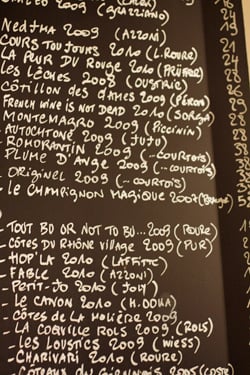 (GRAZZIANO)
NEDJMA 2009 (AZZONI) 24
COURS TOUJOURS 2010 (L. ROURE) 19
LA PEUR DU ROUGE 2010 (PRÜFER)
LES LÈCHES 2008 (OUSTRIC)
COTILLON DES DAMES 2009 (PÉRON)
FRENCH WINE IS NOT DEAD 2010 (SORGA)
MONTEMAGRO 2009 (PICCININ)
AUTOCHTONE 2009 (TUTU)
- ROMORANTIN 2009 (--COURTOIS)
- PLUME D'ANGE 2009 (--COURTOIS)
- ORIGINEL 2009 (--COURTOIS)
- LE CHAMPIGNON MAGIQUE 2007
- TOUT BU OR NOT TO BU... 2009 (ROURE)
- CÔTES DU RHÔNE VILLAGE 2009 (PUR)
- HOP'LA 2010 (LAFFITTE)
- FABLE 2010 (AZZONI)
- PETIT-JO 2010 (JOLY)
- LE CANON 2010 (H. OOKA)
- CÔTES DE LA MOLIÈRE 2009
- LA COAVILLE ROLS 2009 (ROLS)
- LES LOUSTICS 2009 (WIESS)
- CHARIVARI 2010 (ROURE)
- COTEAUX DU GIENNOIS 2005 (COSTE